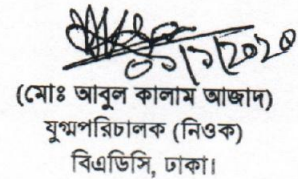 ০১/১/২০২০
(মোঃ আবুল কালাম আজাদ)
যুগ্মপরিচালক (নিওক)
বিএডিসি, ঢাকা।